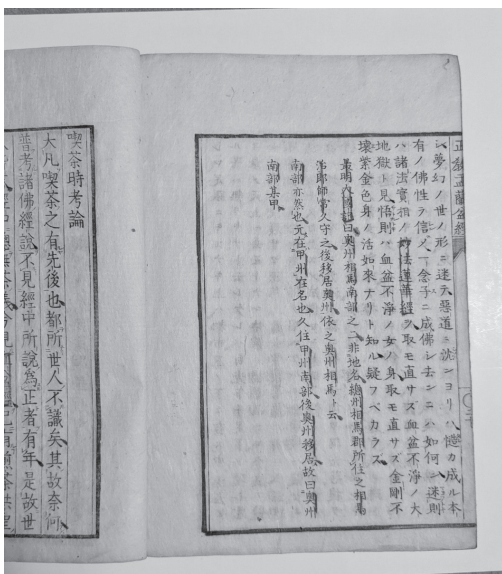 ン夢幻ノ世ノ形ニ迷テ惡道ニ沈ンヨリハ慥カ成ル本
有ノ佛性ヲ信 一念子ニ成佛シ去ンニハ如何ン迷則
ハ諸法實相ノ妙法蓮華經ヲ取モ直サズ血盆不淨ノ大
地獄ト見悟則バ血盆不淨ノ女ノ身取モ直サズ金剛不
壞紫金色身ノ活如來ナリト知ル疑フベカラズ
曰奧州相馬南部之二非地名總州相馬郡所住之相馬
治郎師常久守之後移居奧州依之奧州相馬ト云
南部亦然也元在甲州在名也久住甲州南部後奧州移居故曰奧州
南部某甲
喫茶時考論
大凡喫茶之有先後也都所世人不識矣其故奈何
普考諸佛經說不見經中所說為正者有年是故世